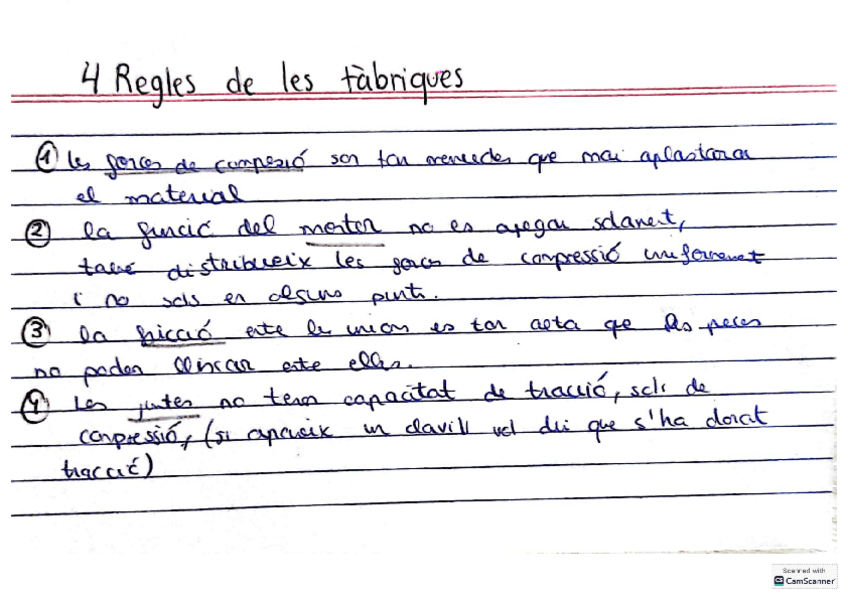 4 Regles de les fàbriques
① Les forces de compresió son tan menudes que mai aplastaran
el material
② La funció del morter no es apegar solament,
també distribueix les forces de compressió uniformement
i no sols en alguns punts.
③ La fricció entre les unions es tan alta que les peces
no poden lliscar entre elles.
④ Les juntes no tenen capacitat de tracció, sols de
compressió, (si apareix un clavill vol dir que s'ha donat
tracció)
Scanned with
CS CamScanner